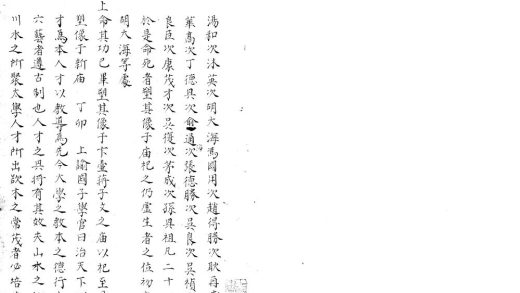 湯和次沐英次胡大海馮國用次趙得勝次耿再
華高次丁德興次俞通次張德勝次吳良次吳禎
良臣次康茂才次吳復次茅成次孫興祖凡二十
於是命死者塑其像于廟祀之仍虛生者之位初
胡大海等處
上命其功已畢塑其像于卞壼蔣子文之廟以祀至
塑像于新廟　丁卯　上諭國子學官曰治天下
才為本人才以教導為先今大學之教本之德行
六藝者遵古制也人才之興將有其效夫山水之
川水之所聚太學人才所出欲木之常茂者必培